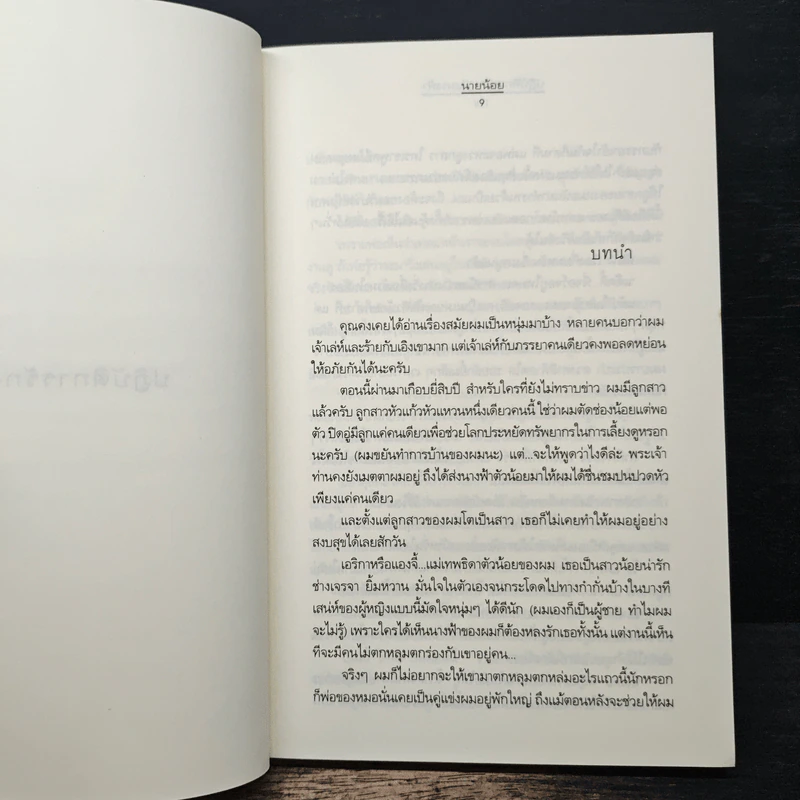 นายน้อย
9
บทนำ
คุณคงเคยได้อ่านเรื่องสมัยผมเป็นหนุ่มมาบ้าง หลายคนบอกว่าผม
เจ้าเล่ห์และร้ายกับเอิงเขามาก แต่เจ้าเล่ห์กับภรรยาคนเดียวคงพอลดหย่อน
ให้อภัยกันได้นะครับ
ตอนนี้ผ่านมาเกือบยี่สิบปี สำหรับใครที่ยังไม่ทราบข่าว ผมมีลูกสาว
แล้วครับ ลูกสาวหัวแก้วหัวแหวนหนึ่งเดียวคนนี้ ใช่ว่าผมตัดช่องน้อยแต่พอ
ตัว ปิดอู่มีลูกแค่คนเดียวเพื่อช่วยโลกประหยัดทรัพยากรในการเลี้ยงดูหรอก
นะครับ (ผมขยันทำการบ้านของผมนะ) แต่...จะให้พูดว่าไงดีล่ะ พระเจ้า
ท่านคงยังเมตตาผมอยู่ ถึงได้ส่งนางฟ้าตัวน้อยมาให้ผมได้ชื่นชมปนปวดหัว
เพียงแค่คนเดียว
และตั้งแต่ลูกสาวของผมโตเป็นสาว เธอก็ไม่เคยทำให้ผมอยู่อย่าง
สงบสุขได้เลยสักวัน
เอริกาหรือแองจี้...แม่เทพธิดาตัวน้อยของผม เธอเป็นสาวน้อยน่ารัก
ช่างเจรจา ยิ้มหวาน มั่นใจในตัวเองจนกระโดดไปทางก๋ากั่นบ้างในบางที
เสน่ห์ของผู้หญิงแบบนี้มัดใจหนุ่มๆ ได้ดีนัก (ผมเองก็เป็นผู้ชาย ทำไมผม
จะไม่รู้) เพราะใครได้เห็นนางฟ้าของผมก็ต้องหลงรักเธอทั้งนั้น แต่งานนี้เห็น
ทีจะมีคนไม่ตกหลุมตกร่องกับเขาอยู่คน...
จริงๆ ผมก็ไม่อยากจะให้เขามาตกหลุมตกหล่มอะไรแถวนี้นักหรอก
ก็พ่อของหมอนั่นเคยเป็นคู่แข่งผมอยู่พักใหญ่ ถึงแม้ตอนหลังจะช่วยให้ผม